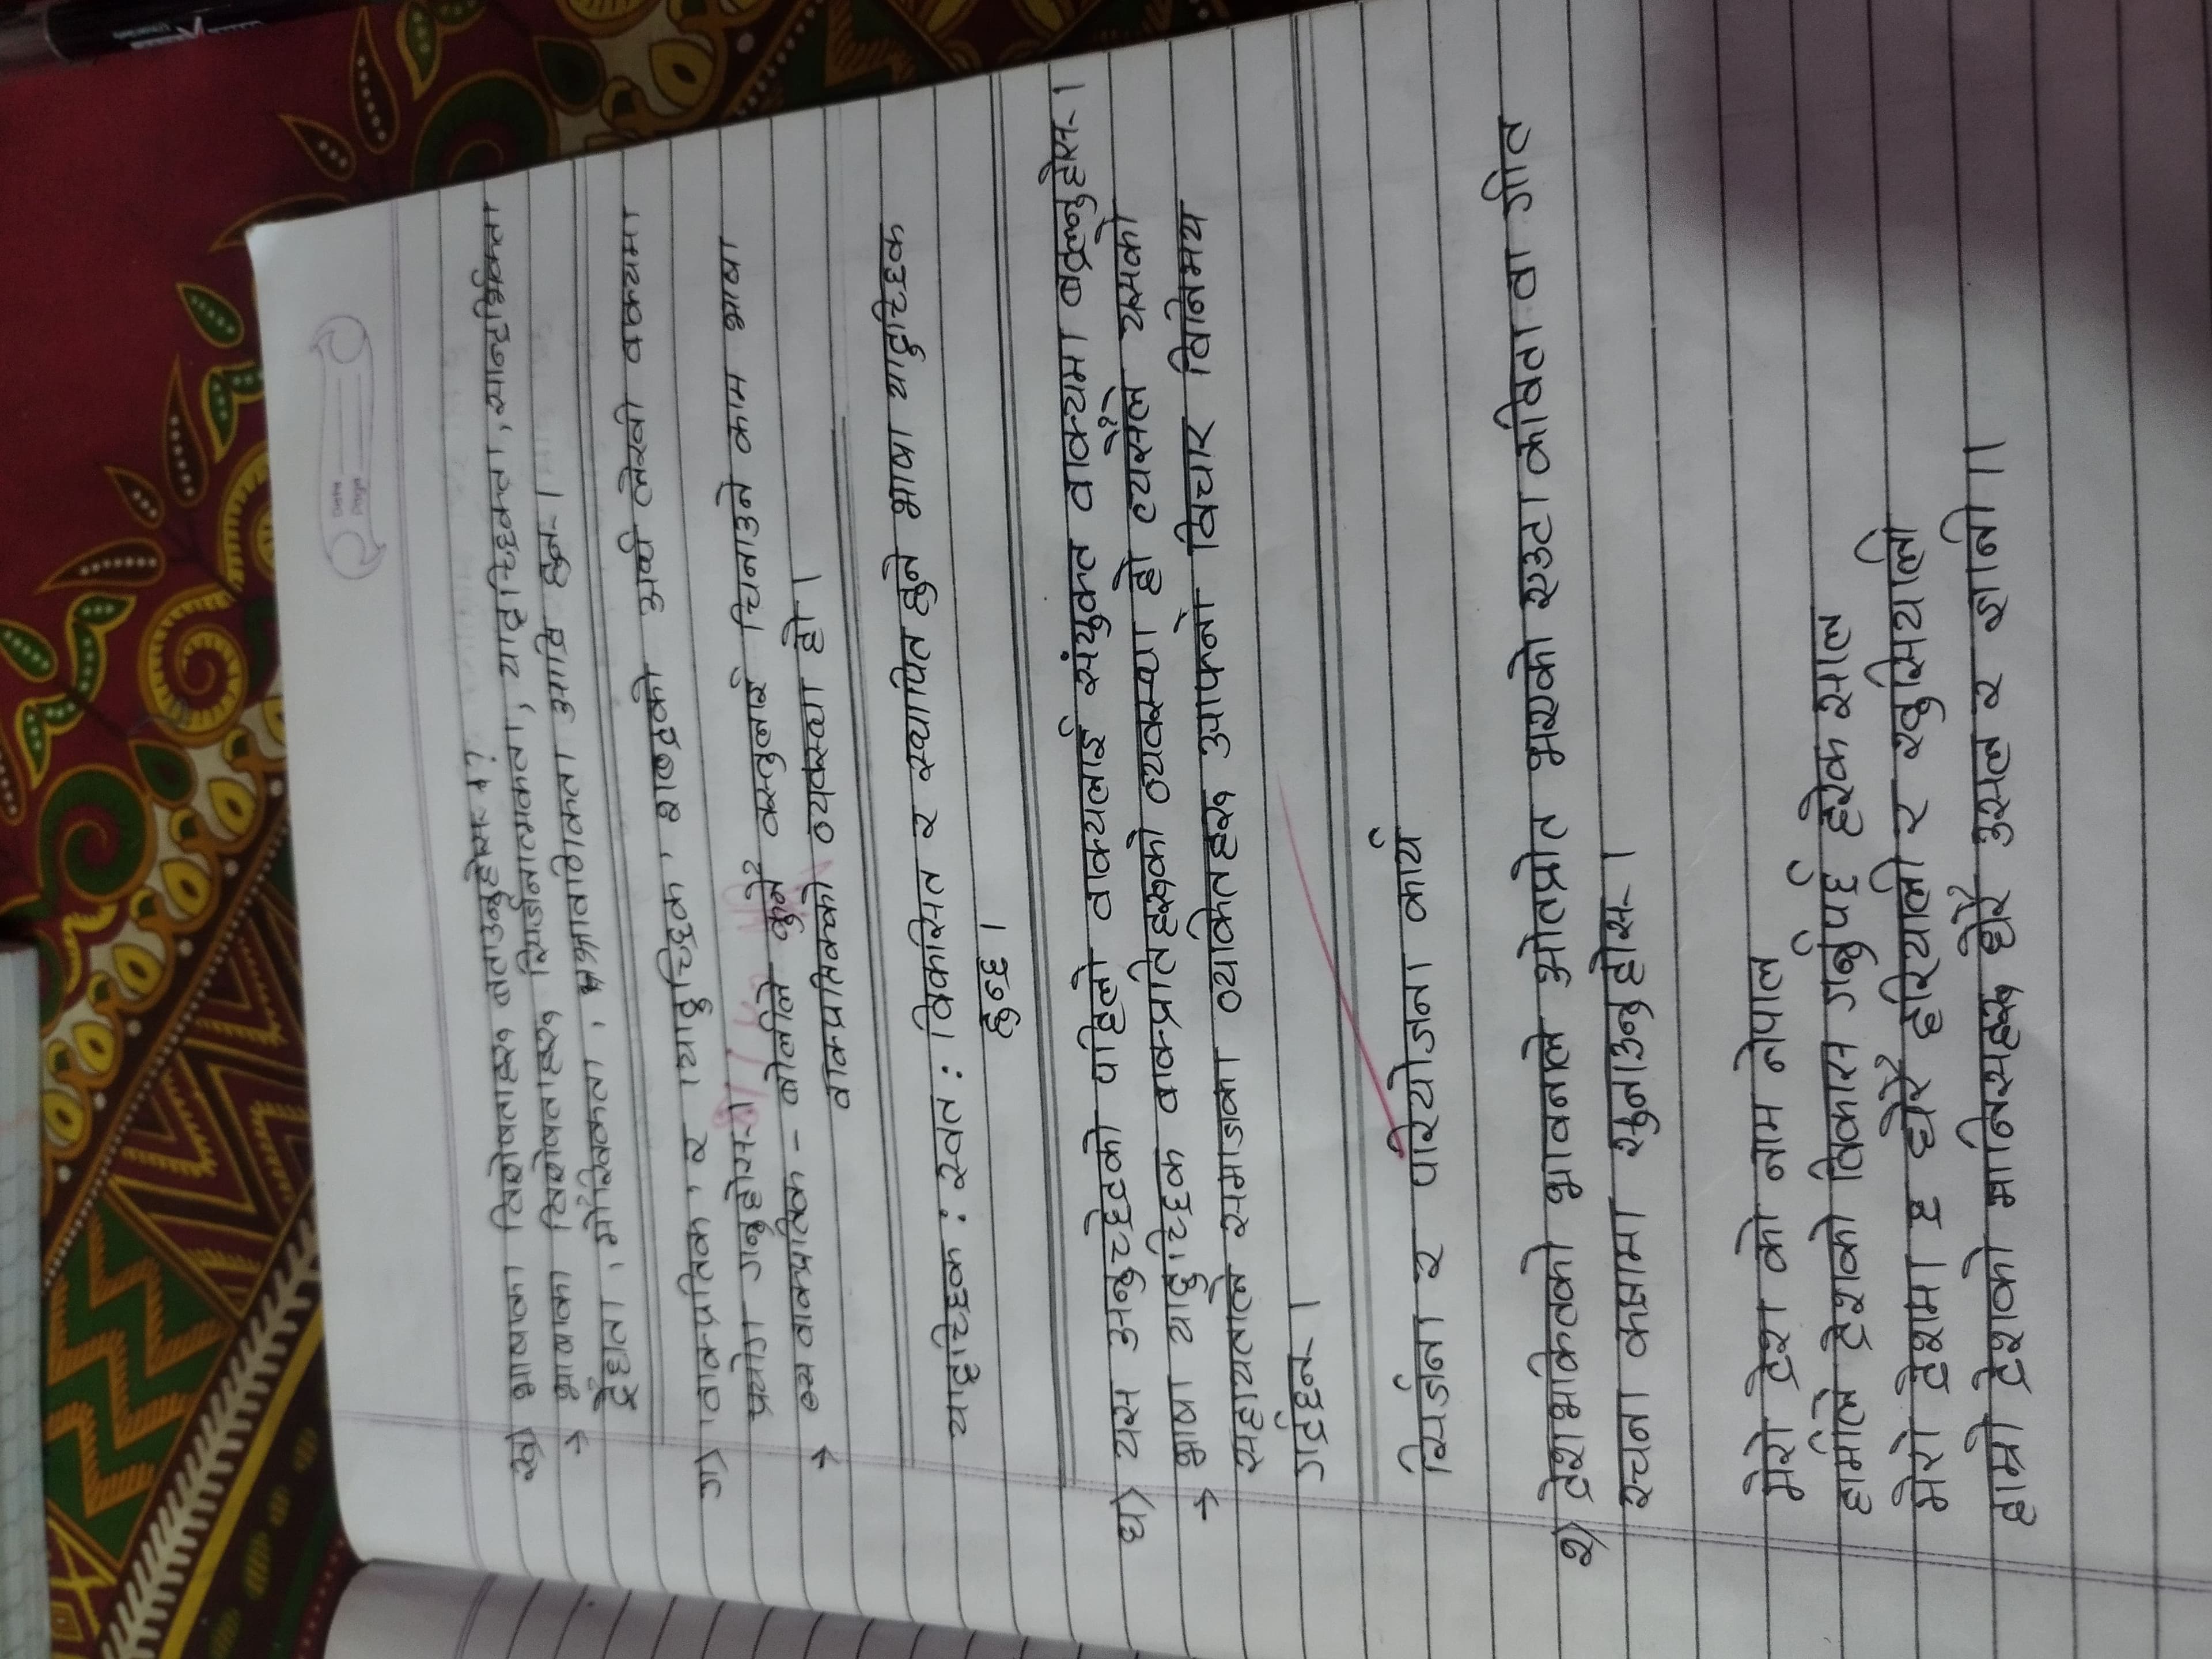 Date
Page
ख) भाषाका विशेषताहरू बताउनुहोस् ?
→ भाषाका विशेषताहरू सिर्जनात्मकता, यादृच्छिकता, सान्दर्भिकता
द्वैधता, मौखिकता, आदि हुन् ।
ग) 'वाक्प्रतिक' र 'यादृच्छिक' शब्दको अर्थ लेखी वाक्यमा
प्रयोग गर्नुहोस् ।
→ वाक्प्रतिक - बोलीले कुनै वस्तुलाई चिनाउने काम भाषा
वाक्प्रतिकको व्यवस्था हो ।
यादृच्छिक : स्वत: विकसित र स्थापित हुने भाषा यादृच्छिक
हुन्छ ।
घ) यस अनुच्छेदको पहिलो वाक्यलाई संयुक्त वाक्यमा बदल्नुहोस् ।
→ भाषा यादृच्छिक वाक्प्रतिहरूको व्यवस्था हो त्यसैले यसको
सहायताले समाजका व्यक्तिहरू आफ्नो विचार विनिमय
गर्दछन् ।
सिर्जना र परियोजना कार्य
२) देशभक्तिको भावनले ओतप्रोत भएको एउटा कविता वा गीत
रचना कक्षामा सुनाउनुहोस् ।
मेरो देश को नाम नेपाल
हामीले देशको विकास गर्नुपर्छ हरेक साल
मेरो देशमा छ धेरै हरियाली र खुसियाली
हाम्रो देशको मानिसहरू धेरै उसल र ज्ञानी ।।